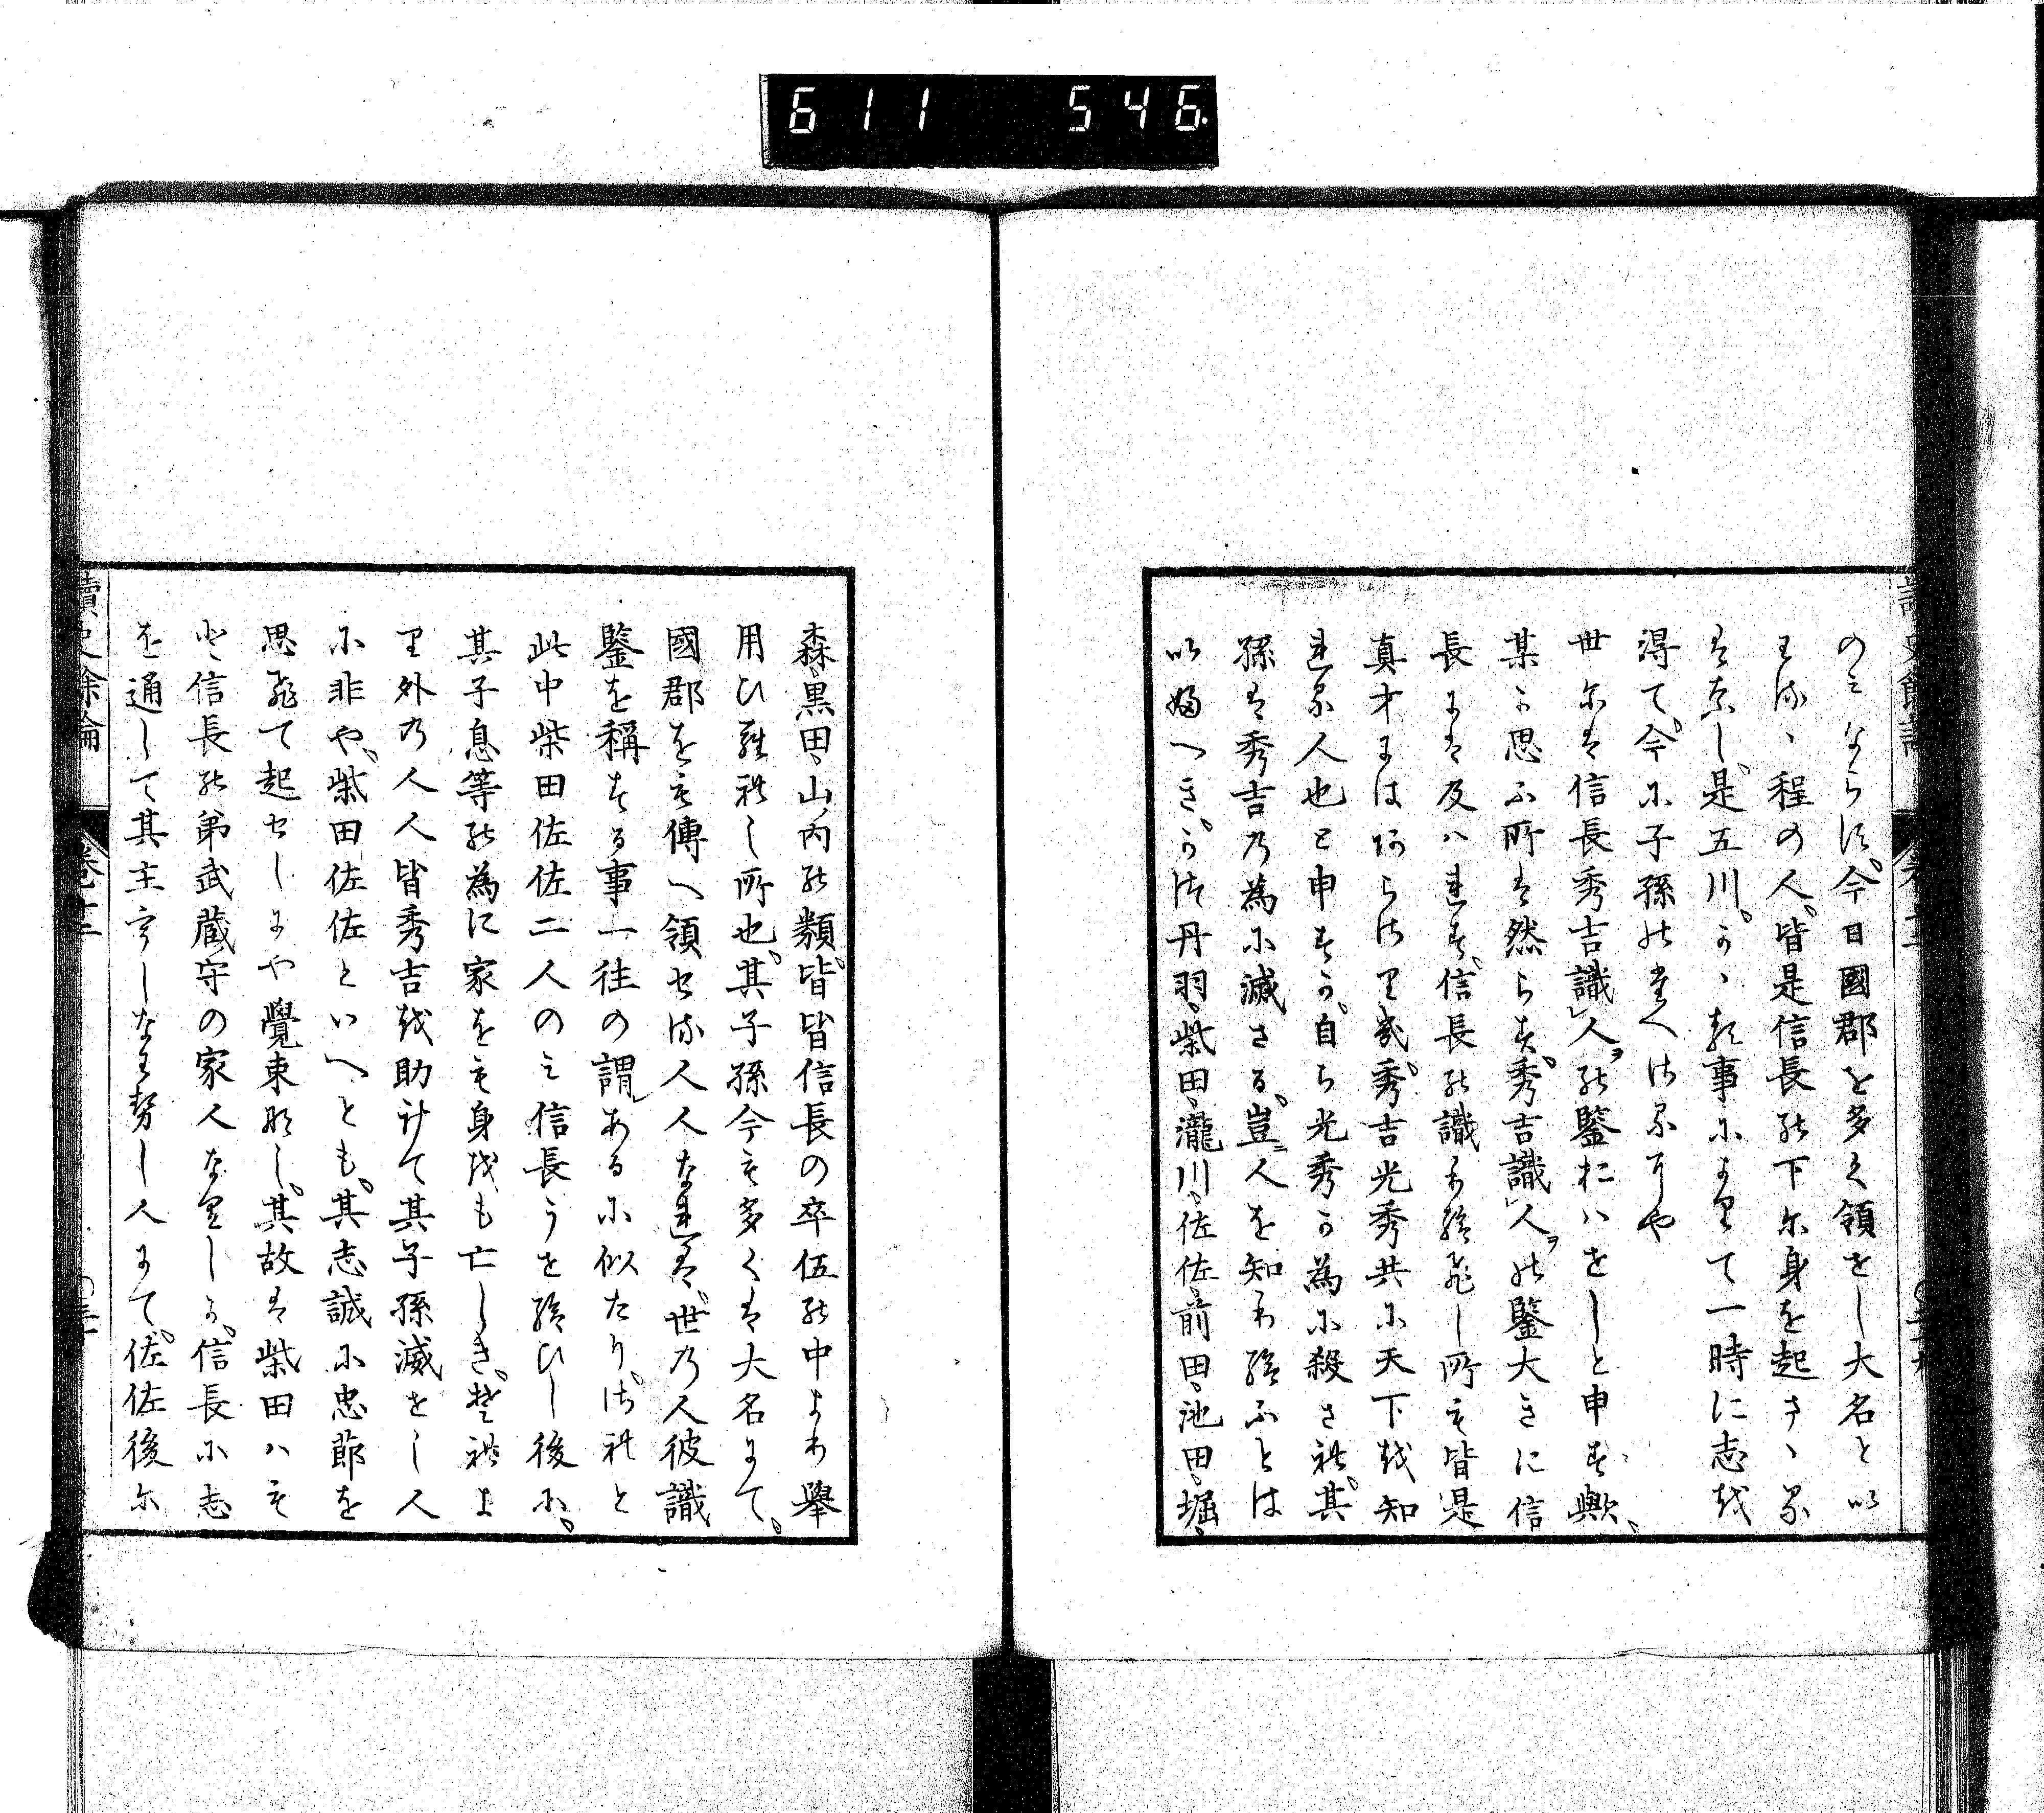 611 546.
のみならす。今日國郡を多く領をし大名と以
はるゝ程の人。皆是信長の下に身を起さゝる
はなし。是五川。かゝる事によりて一時に志を
得て。今に子孫のたへさるにや
世には信長秀吉識人ヲの鑒おハせしと申す歟。
某か思ふ所は然らす。秀吉識人ヲの鑒大きに信
長には及ハれす。信長の識り給ひし所も皆是
真才にはあらさりき。秀吉光秀共に天下を知
れる人也と申すか。自ら光秀か為に殺され。其
孫は秀吉の為に滅さる。豈人を知り給ふとは
以ふへき。かつ丹羽、柴田、瀧川、佐佐、前田、池田、堀、
森、黒田、山内の類。皆皆信長の卒伍の中より擧
用ひられし所也。其子孫今も多くは大名にて。
國郡をも傳へ領せる人人なれは。世の人彼識
鑒を稱する事一往の謂あるに似たり。されと
此中柴田佐佐二人のみ信長うせ給ひし後に。
其子息等の為に家をも身をも亡しき。それよ
り外の人人皆秀吉を助けて其子孫滅せし人
に非や。柴田佐佐といへとも。其志誠に忠節を
思ひて起せしにや覺束なし。其故は柴田ハも
と信長の弟武蔵守の家人なりしか。信長に志
を通して其主亨しなはせし人にて。佐佐後に
讀史餘論 巻十二